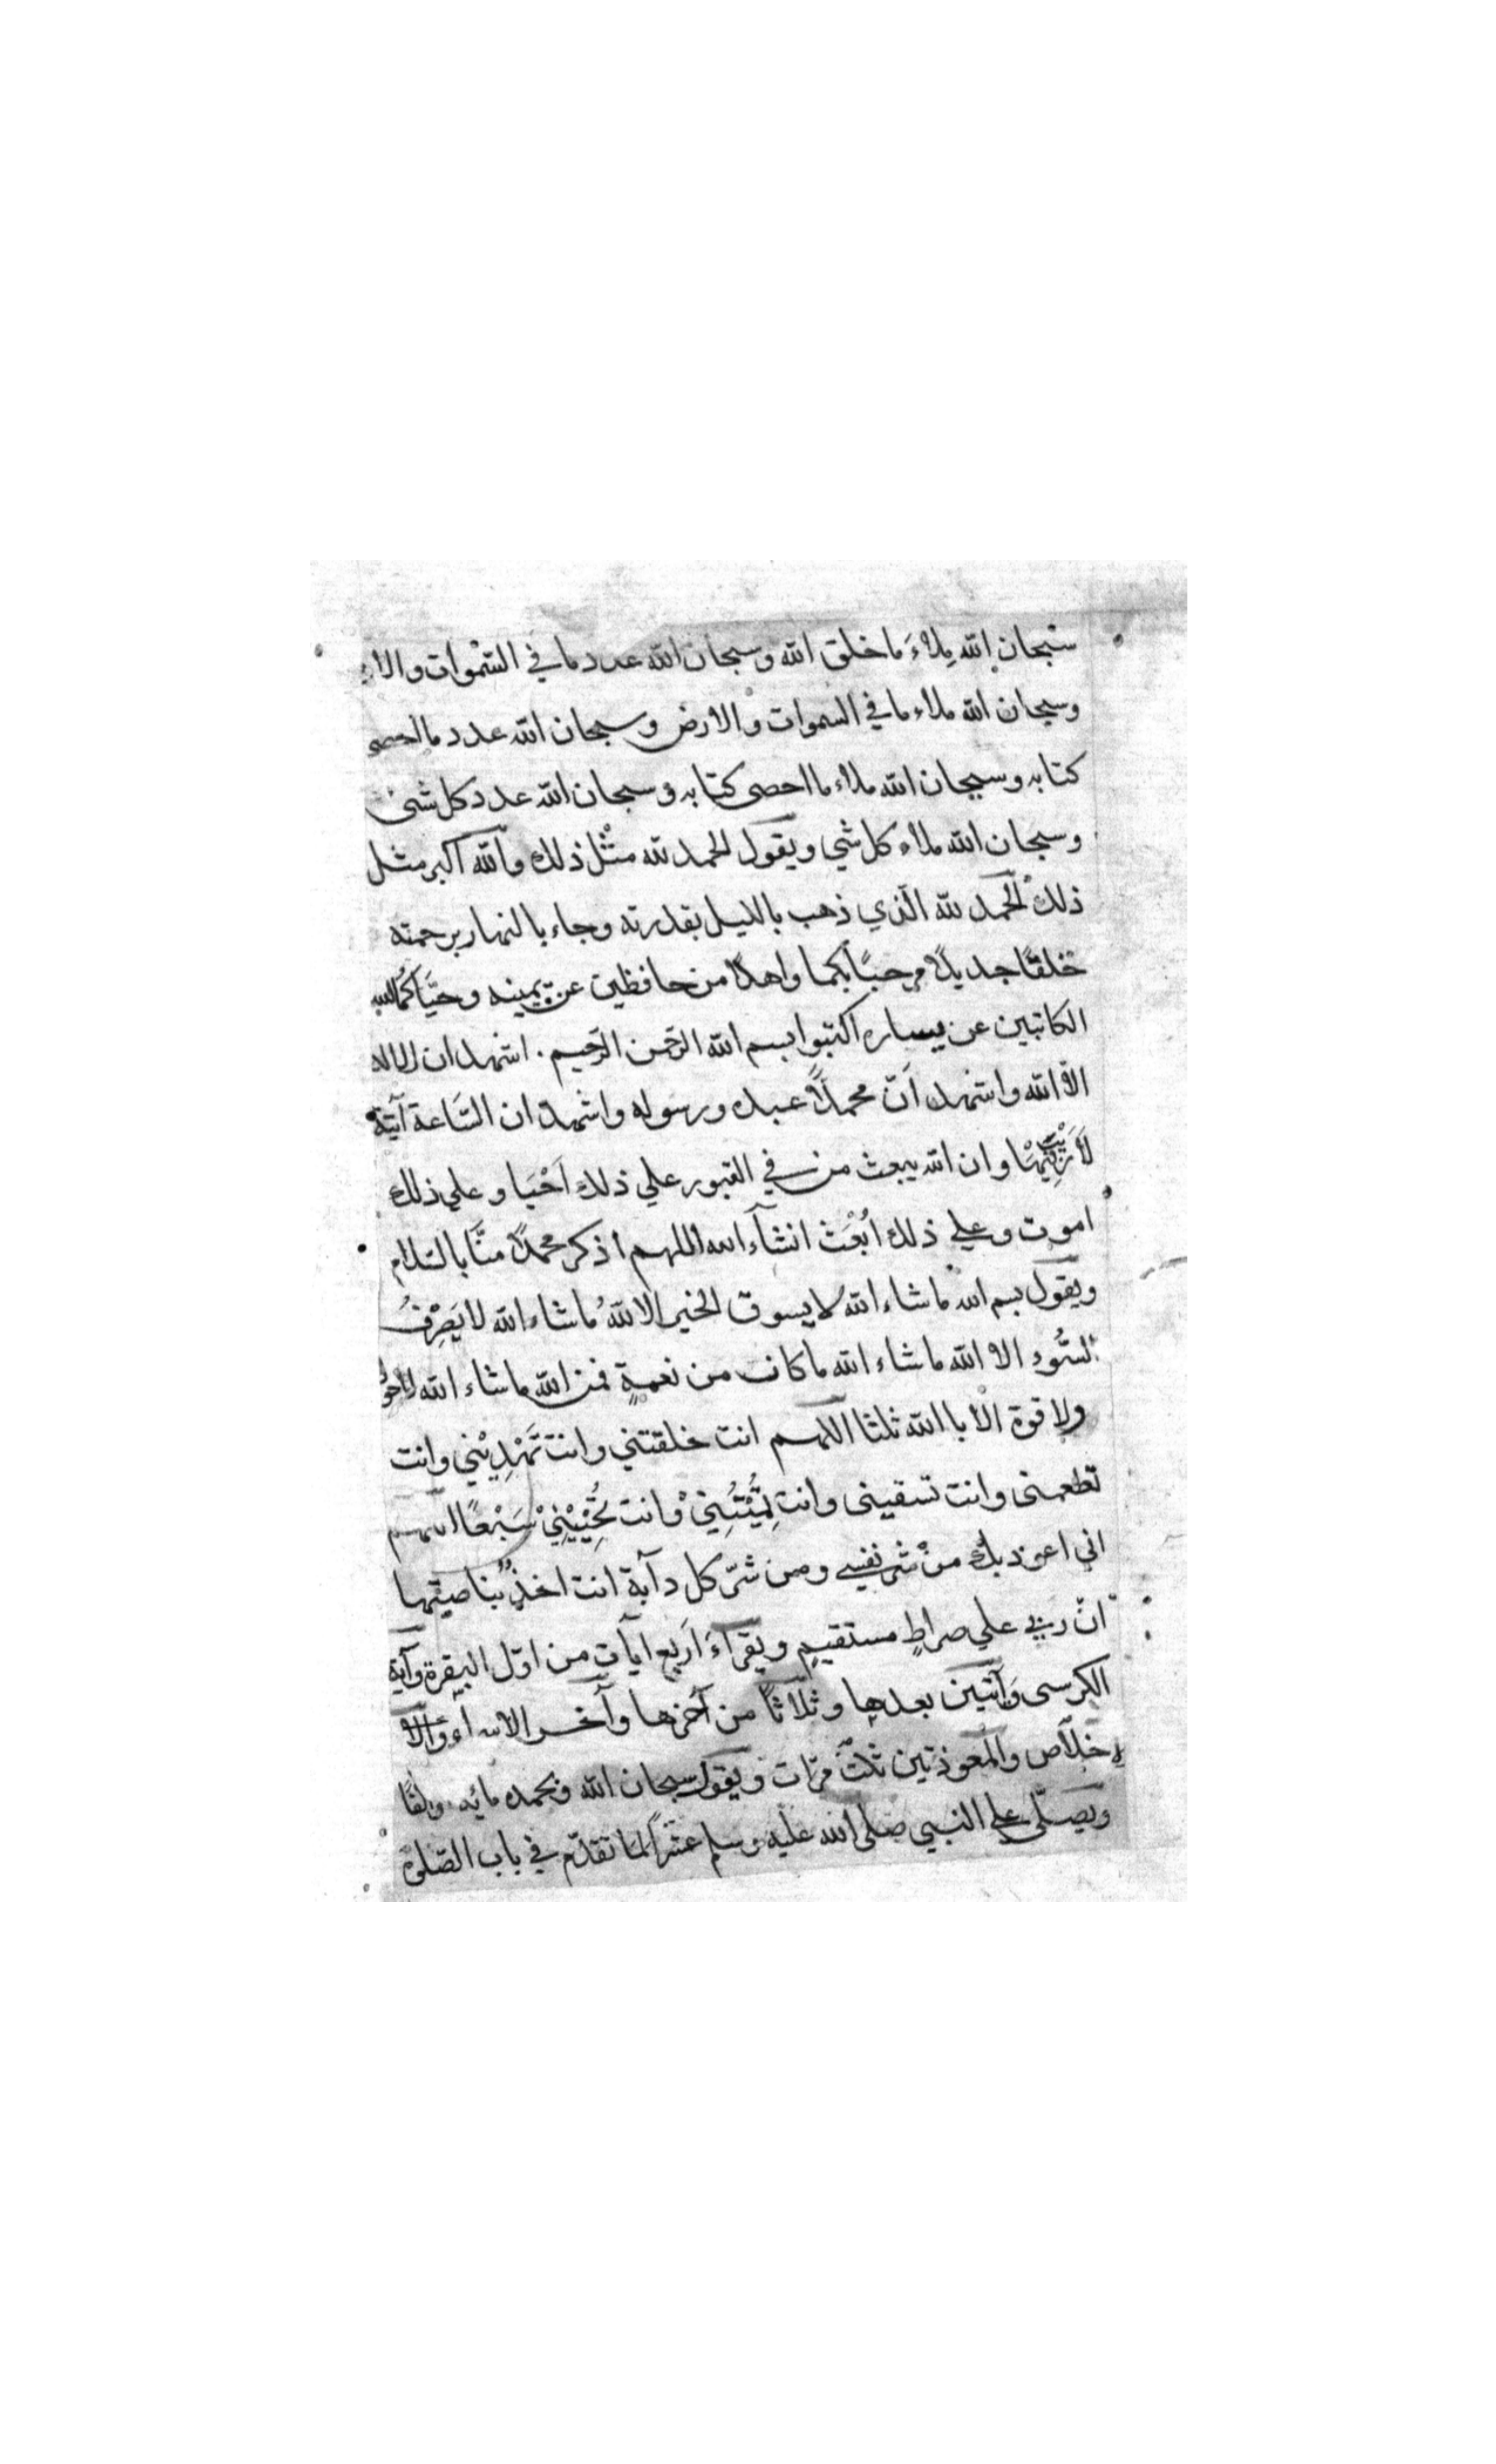 سُبحان الله مِلاءَ ما خلق الله وسبحان الله عدد ما في السّمٰوات والا
وسبحان الله ملاء ما في السموات والارض وسبحان الله عدد ما احصى
كتابه وسبحان الله ملاء ما احصى كتابه وسبحان الله عدد كل شئ
وسبحان الله ملاء كل شي ويقول الحمد لله مثْل ذلك والله اكبر مثل
ذلك الحمد لله الّذي ذهب بالليل بقدرته وجاء بالنهار برحمته
خلقًا جديدًا مرحبًا بكما واهلا من حافظين عن يمينه وحيّاكُما الله
الكاتبين عن يساره اكتبوا بسم الله الرّحمن الرّحيم . اشهد ان لا اله
الا الله واشهد انّ محمدًا عبده ورسوله واشهد ان السّاعة آتية
لَا رَيْبَ فِيْهَا وان الله يبعث من في القبور علي ذلك اَحْيَا وعلي ذلك
اموت وعلي ذلك اُبْعَث انشآء الله اللهم اذكر محمدًا منَّا بالسّلام
ويقول بسم الله ما شاء الله لا يسوق الخير الا اللهُ ما شاء الله لا يَصْرِفُ
السُّوء الا الله ما شاء الله ما كان من نعمةٍ فمن الله ما شاء الله لا حول
ولا قوة الا باالله ثلثا اللهم انت خلقتني وانت تَهْدِيْني وانت
تطعمنى وانت تسقينى وانت تُمِيْتُنِيْ وانت تُحْيِيْنِيْ سَبْعًا اللهم
اني اعوذ بك منْ شر نفسي ومن شرّ كل دآبة انت اخذٌ بناصيتها
انّ ربي علي صراطٍ مستقيمٍ ويقرآءَ اَربع ايآت من اوّل البقرة وآية
الكرسى وَآيتين بعدها وثلاثًا من آخرها وآخر الاسراء والا
خلآص والمعوذتين ثلثَ مرّات ويقول سبحان الله وبحمده مائه والفًا
ويصلّى علي النبي صلى الله عليه وسلم عشرًا لما تقدّم في باب الصّلوة